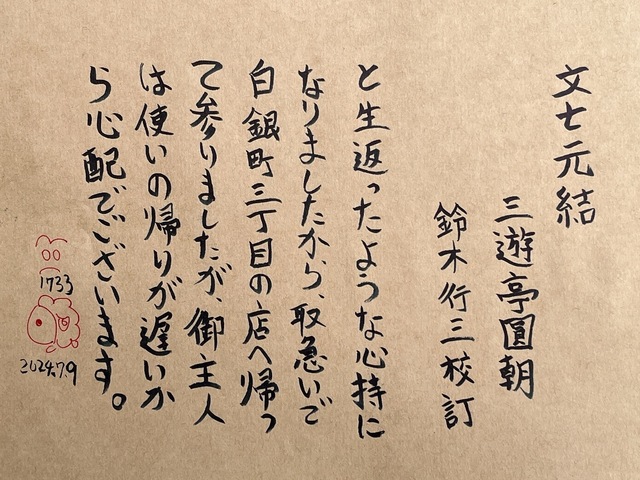 文七元結
三遊亭圓朝
鈴木行三校訂
と生返ったような心持に
なりましたから、取急いで
白銀町三丁目の店へ帰っ
て参りましたが、御主人
は使いの帰りが遅いか
ら心配でございます。
1733
2024.7.9